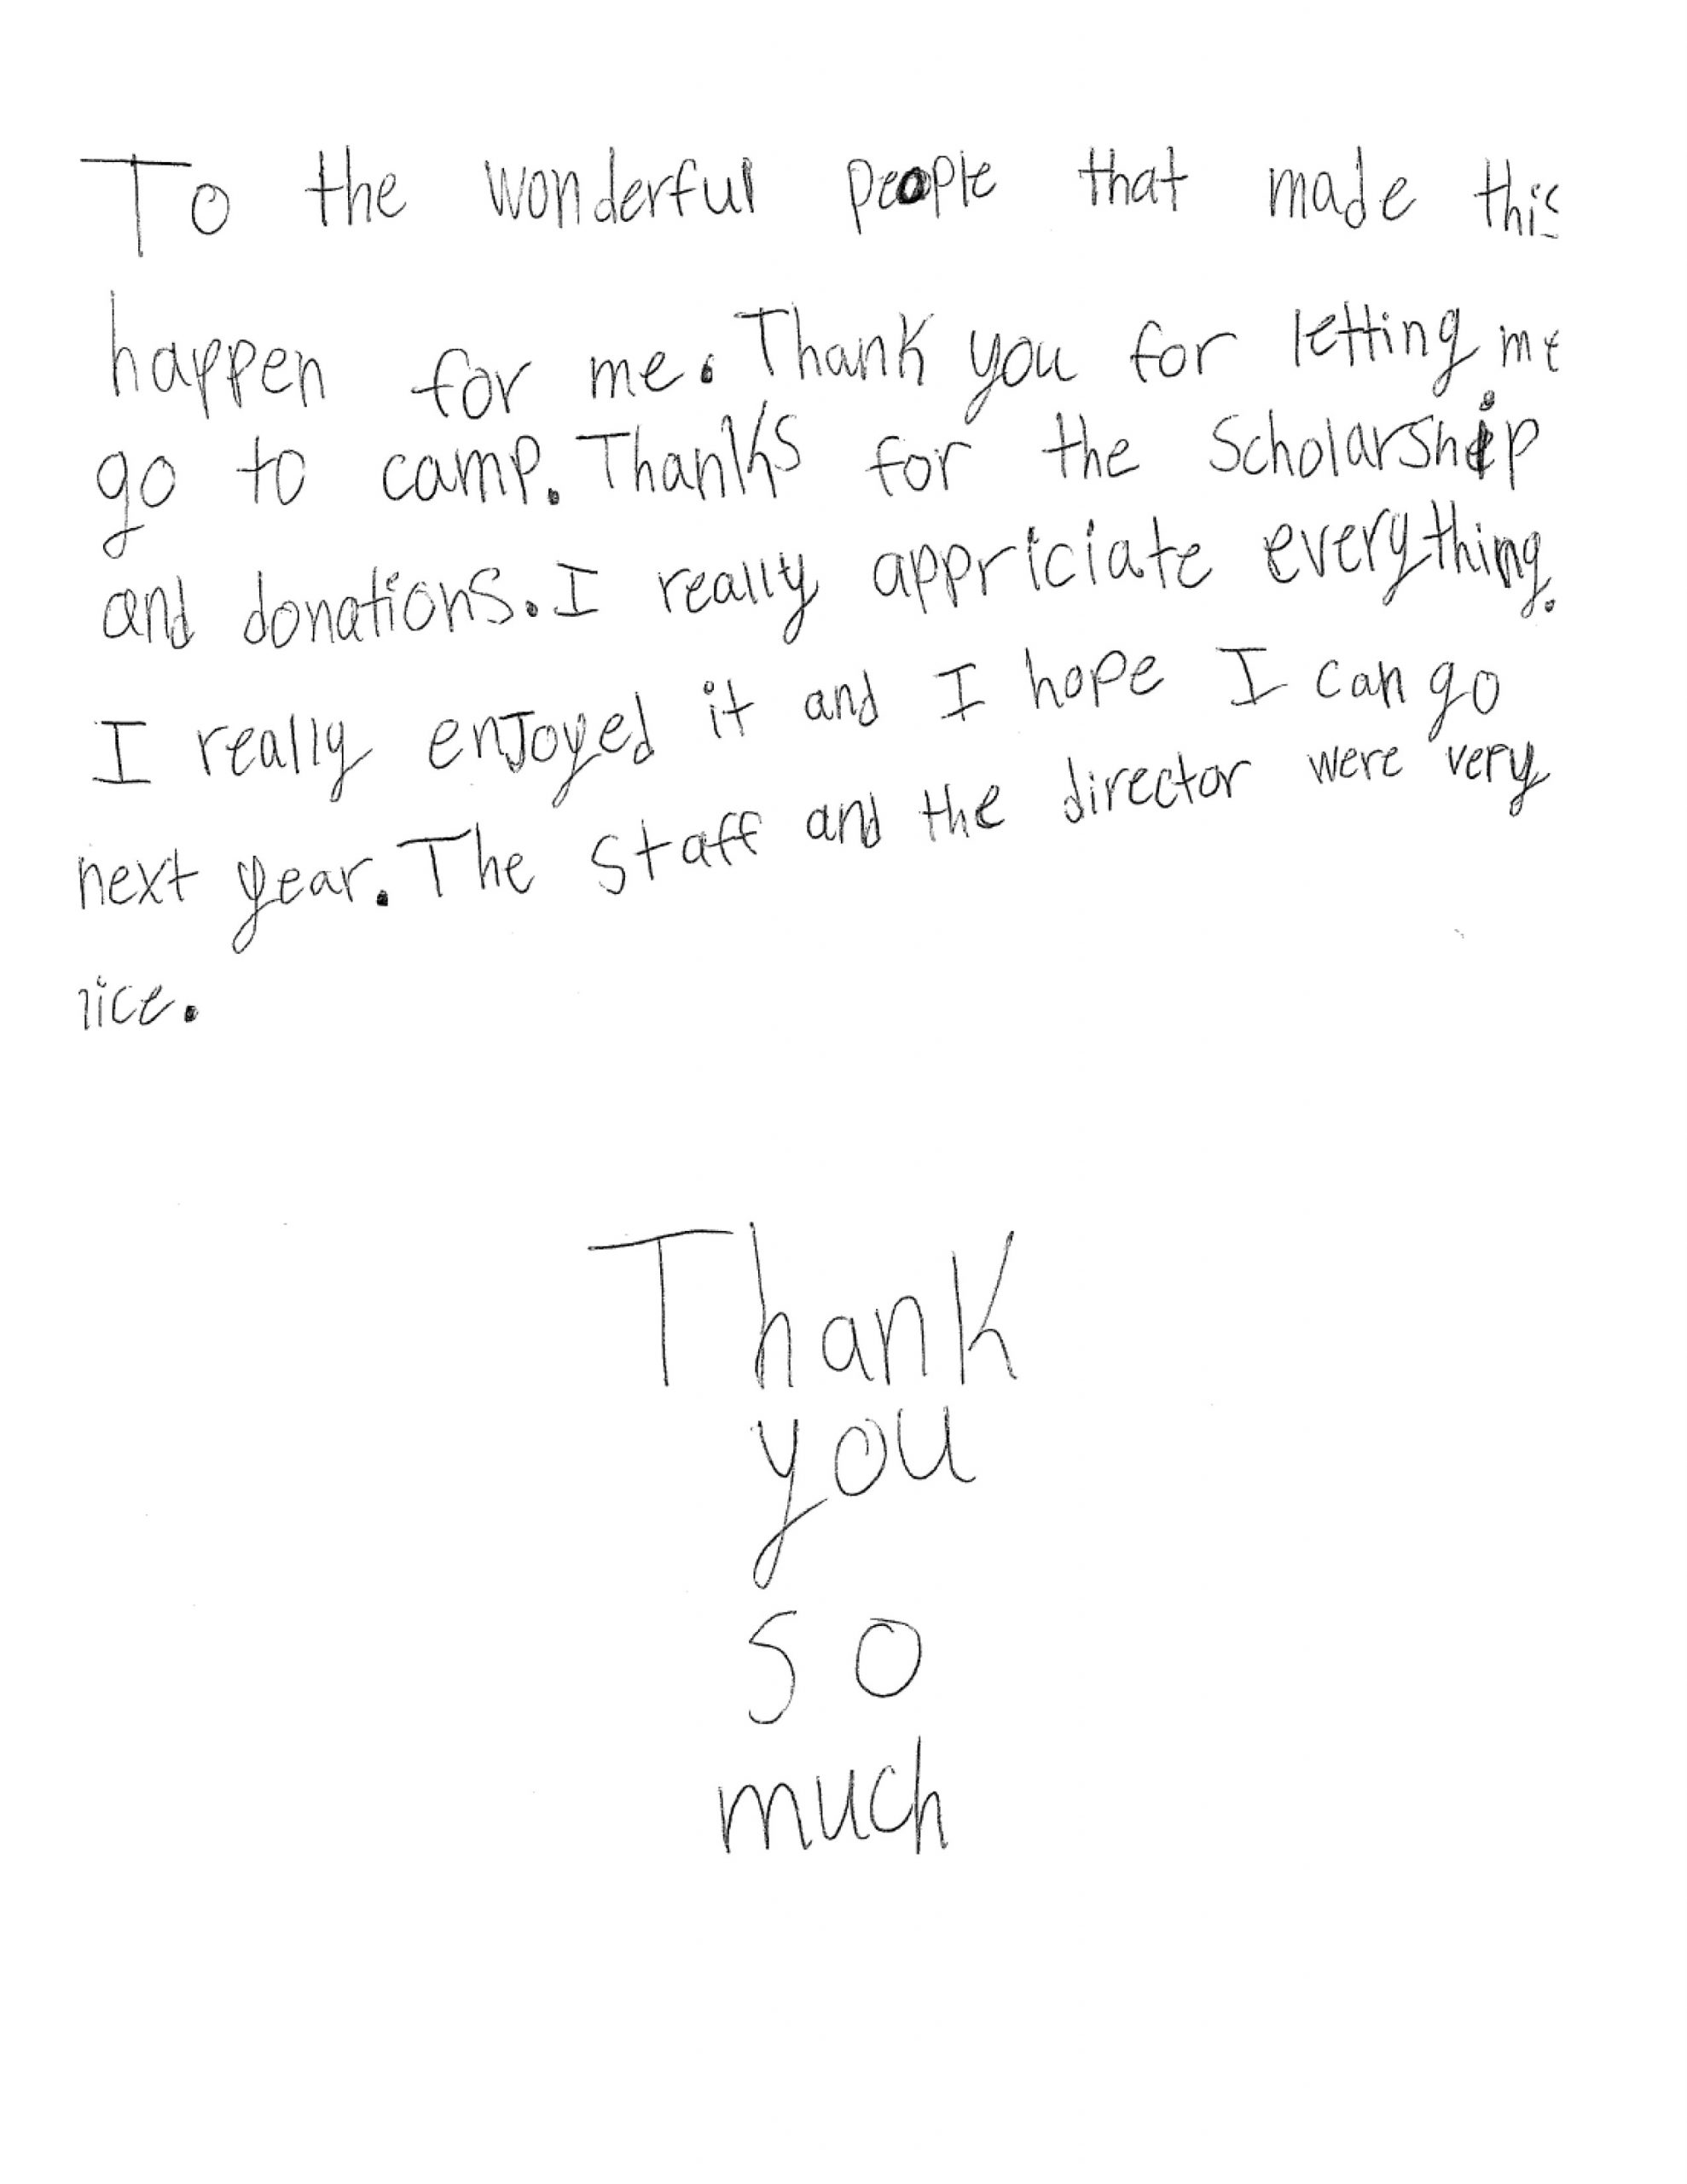 To the wonderful people that made this
happen for me. Thank you for letting me
go to camp. Thanks for the Scholarship
and donations. I really appriciate everything.
I really enjoyed it and I hope I can go
next year. The Staff and the director were very
nice.
Thank
you
so
much